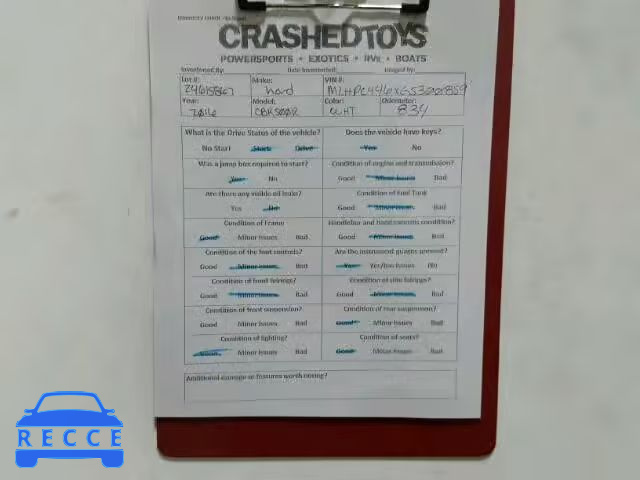 CRASHEDTOYS
POWERSPORTS • EXOTICS • RVs • BOATS
Inventoried By: Date Inventoried: Imaged by:
Lot #: Make: VIN #:
24615867 hond MLHPC446XG5300859
Year: Model: Color: Odometer:
2016 CBR500R WHT 834
What is the Drive Status of the vehicle? Does the vehicle have keys?
No Start Start Drive Yes No
Was a jump box required to start? Condition of engine and transmission?
Yes No Good Minor Issues Bad
Are there any visible oil leaks? Condition of Fuel Tank
Yes No Good Minor Issues Bad
Condition of Frame Handlebar and hand controls condition?
Good Minor Issues Bad Good Minor Issues Bad
Condition of the foot controls? Are the instrument guages present?
Good Minor Issues Bad Yes Yes/no Issues No
Condition of front fairings? Condition of side fairings?
Good Minor Issues Bad Good Minor Issues Bad
Condition of front suspension? Condition of rear suspension?
Good Minor Issues Bad Good Minor Issues Bad
Condition of lighting? Condition of seats?
Good Minor Issues Bad Good Minor Issues Bad
Additional damage or features worth noting?
RECCE